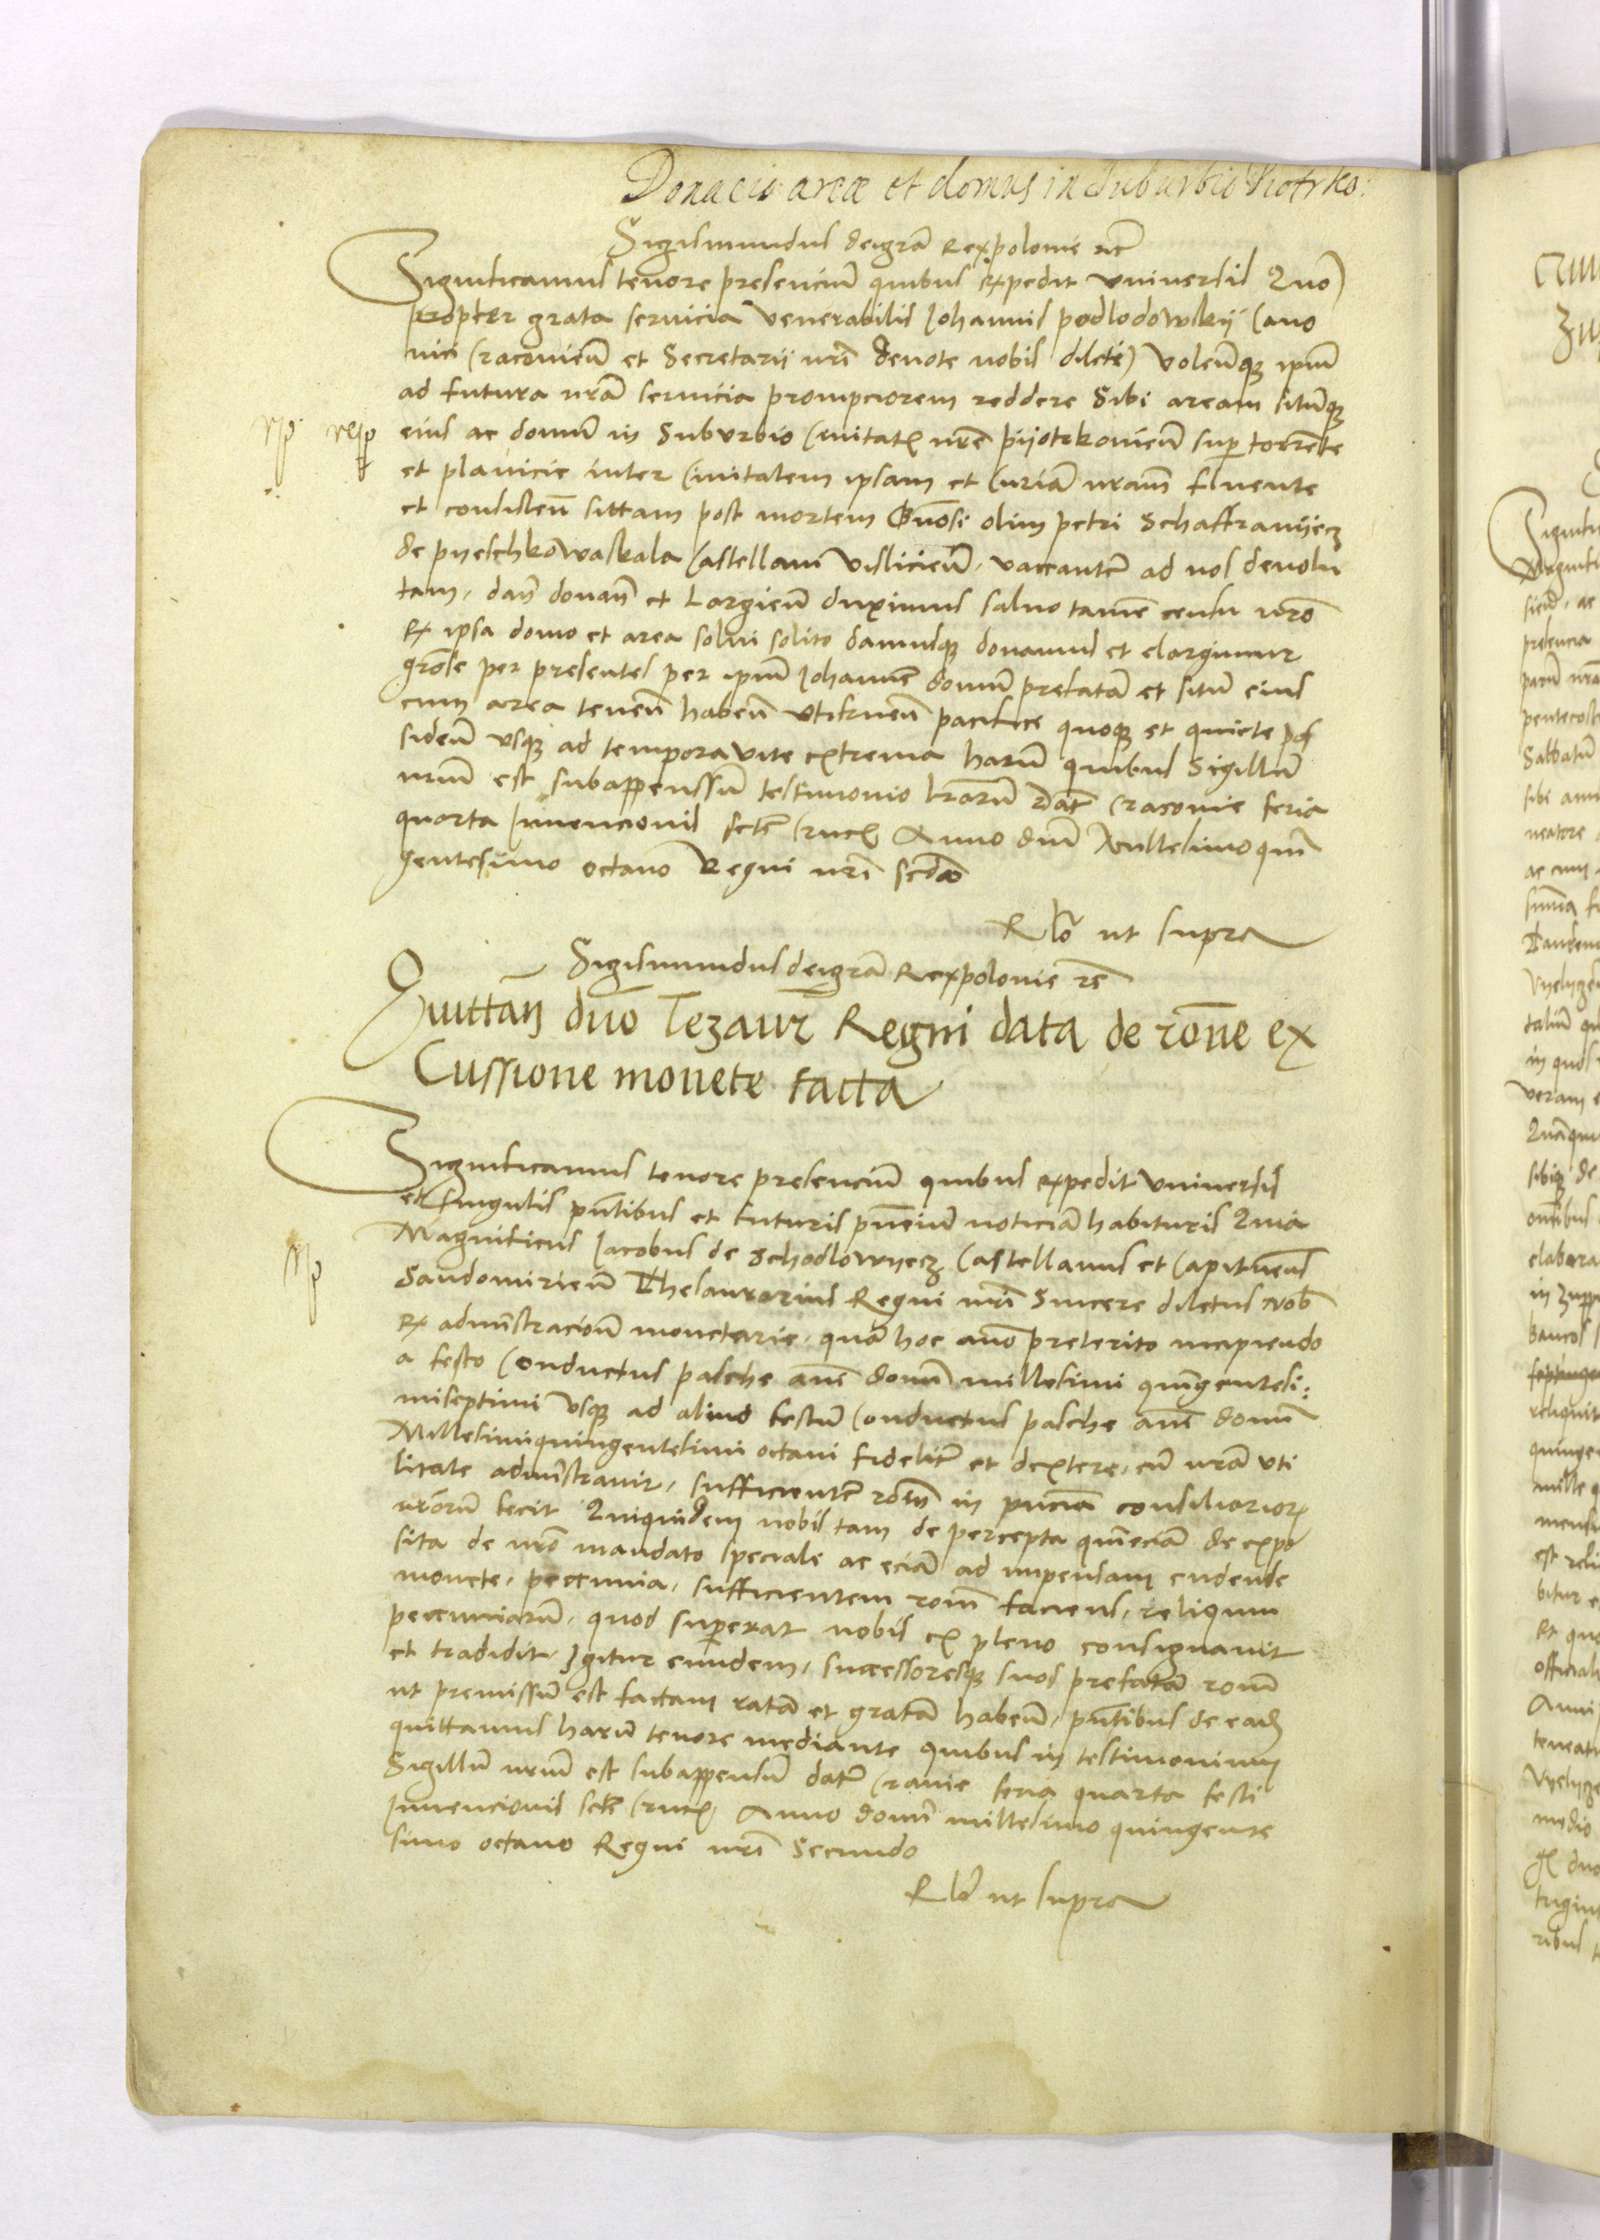 Donacio areæ et domus in Suburbio Piotrko:
Sigismundus deigrã Rex polonie etc̃
Significamus tenore presenciũ quibus expedit universis Quo
propter grata servicia venerabilis Johannis podlodowskij Cano
nici Cracovieñ et Secretarij nrĩ devote nobis dilc̃ti volentesq̃ ipm̃
ad futura nrã servicia prompciorem reddere Sibi aream situmq̃
eius ac domũ in Suburbio Civitatis nrẽ pijotrkovieñ sup̃ torrente
et planicie inter Civitatem ipsam et Curiã nram̃ fluente
et consisteñ sittam post mortem Gñosi olim petri Schaffranijecz
de pyeschkowaskala Castellani vislicieñ, vaccantẽ ad nos devolu
tam, dañ donañ et Largieñ duximus salvo tamẽ censu nrõ
ex ipsa domo et area solvi solito damusq̃ donamus et elargimur
grõse per presentes per ipm̃ Johannẽ domũ prefatã et situm eius
cum area teneñ habeñ utifrueñ pacifice quoq̃ et quiete pos
sideñ usq̃ ad tempora vite extrema harũ quibus Sigillũ
nrũm est subappenssũ testimonio lrarũ Dat̃ Cracovie feria
quarta Invencionis sctẽ Crucis Anno dnĩ Millesimo quin
gentesimo octavo Regni nrĩ scdo
Rlõ ut supra
Sigismundus deigrã Rex polonie etc̃
Quittañ dño Tezaur̃ Regni data de rõne ex
Cussione monete facta
Significamus tenore presenciũ quibus expedit universis
et singulis pñtibus et futuris pñciũ noticiã habituris Quia
Magnificus Jacobus de Schodlowyecz Castellanus et Capitneus
Sandomirieñ Thesaurarius Regni nrĩ Sincere dilctus nobis
ex adm̃stracioñ monetarie, quã hoc anno preterito incipiendo
a festo Conductus pasche anni domĩ millesimi quingentesi:
miseptimi usq̃ ad aliud festũ Conductus pasche anni domĩ
Millesimiquingentesimi octavi fidelitẽ et dextere, cũ nrã uti
litate adm̃stravit, sufficientẽ rõnẽ in pñcia consiliarior̃
nrõrũ fecit Quiquidem nobis tam de percepta quãeciã de expo
sita de nrõ mandato speciali ac eciã ad impensam cudende
monete, peccunia, sufficientem rõnẽ faciens, reliqum
peccuniarũ, quod superat nobis ex pleno consignavit
et tradidit, Igitur eundem, successoresq̃ suos prefatã rõnẽ
ut premissũ est factam ratã et gratã habeñ, pñtibus de eadẽ
quittamus harũ tenore mediante quibus in testimonium
Sigillũ nrũm est subappensũ datũ Cracovie feria quarta festi
Invencionis sctẽ Crucis, Anno domĩ millesimo quingente
simo octavo Regni nrĩ Secundo
Rlõ ut supra